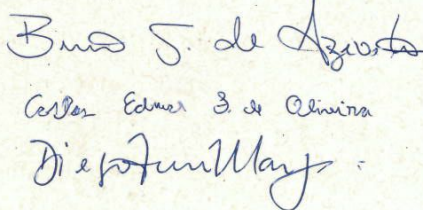 Bruno S. de Azevedo
Carlos Edmar S. de Oliveira
Diego